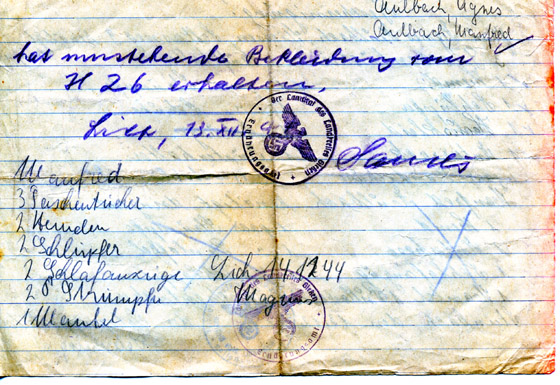 Aulbach, Agnes
Aulbach, Manfred
hat umstehende Bekleidung vom
H 26 erhalten.
Lich, 13. XII
Der Landrat des Landkreises Gießen
Ernährungsamt
Manfred
3 Taschentücher
2 Hemden
2 Schlüpfer
2 Schlafanzüge Lich 14 12 44
2 P Strümpfe Magnus
1 Mantel
Ernährungsamt